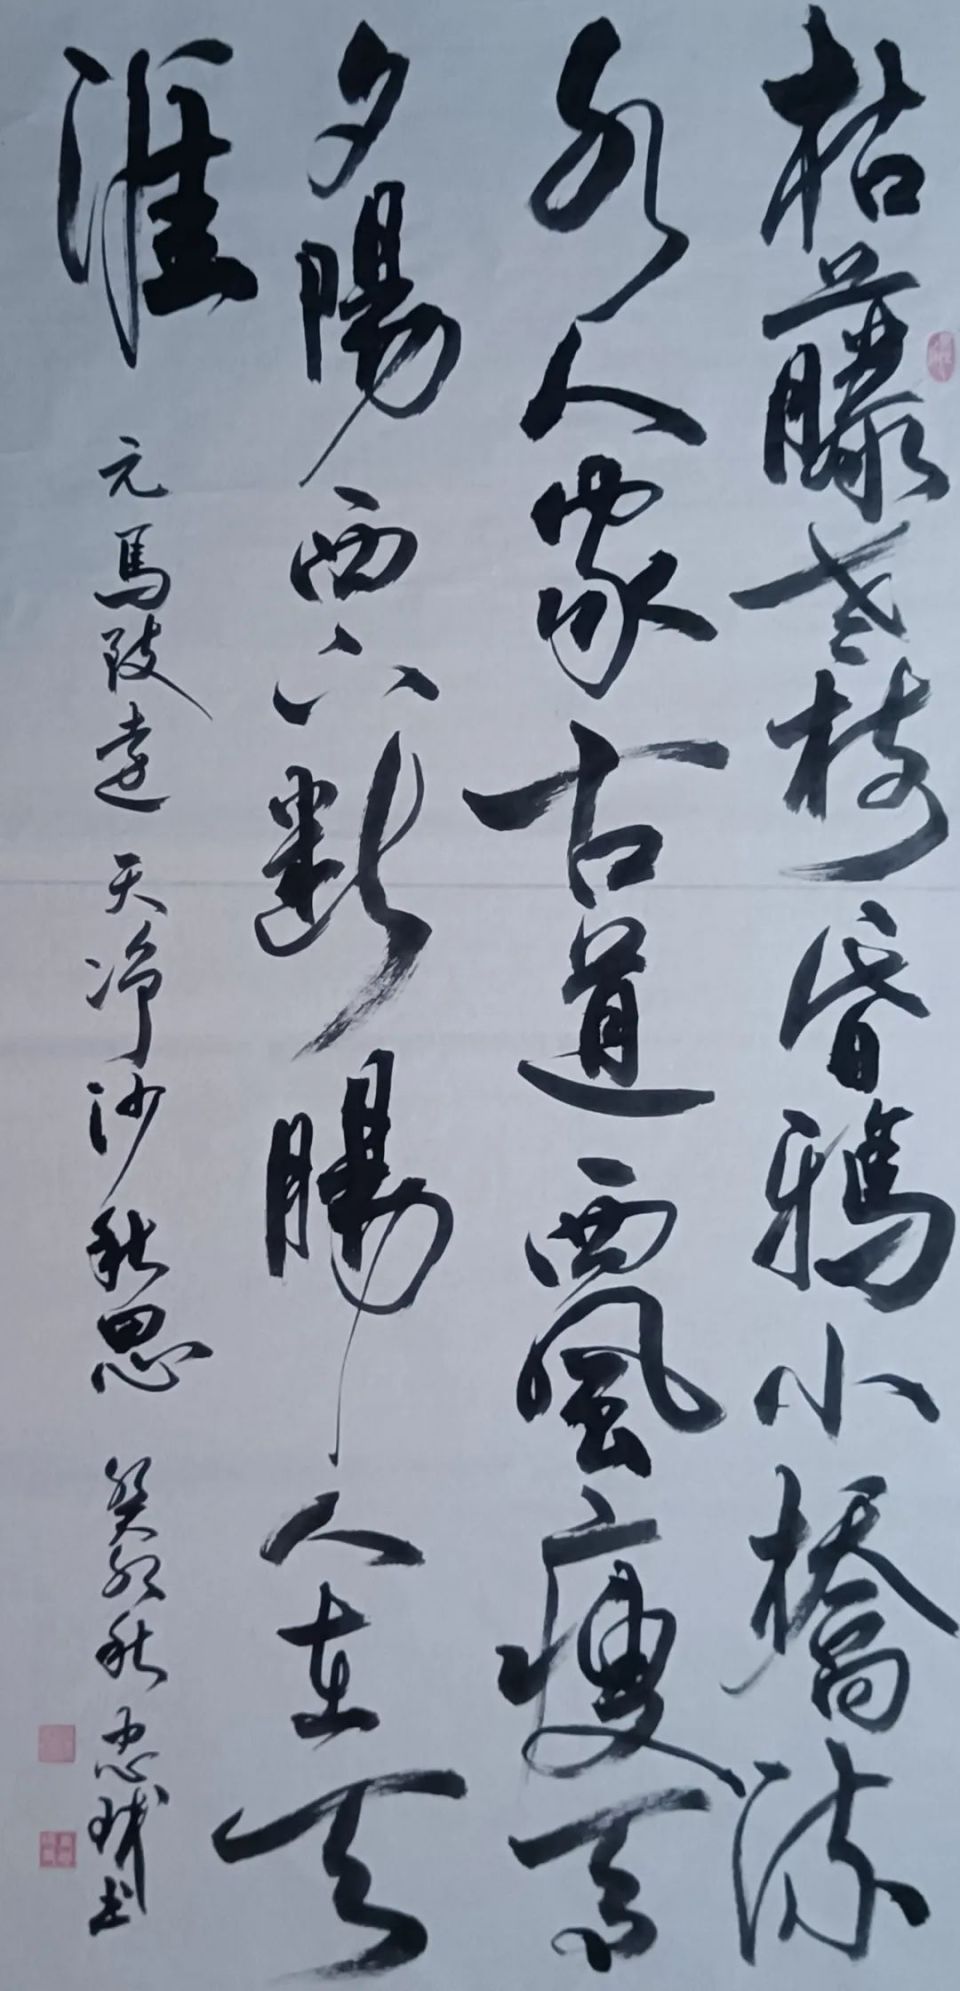 枯藤老樹昏鴉小橋流
水人家古道西風瘦馬
夕陽西下斷腸人在天
涯
元馬致遠天净沙秋思癸卯秋忠城書